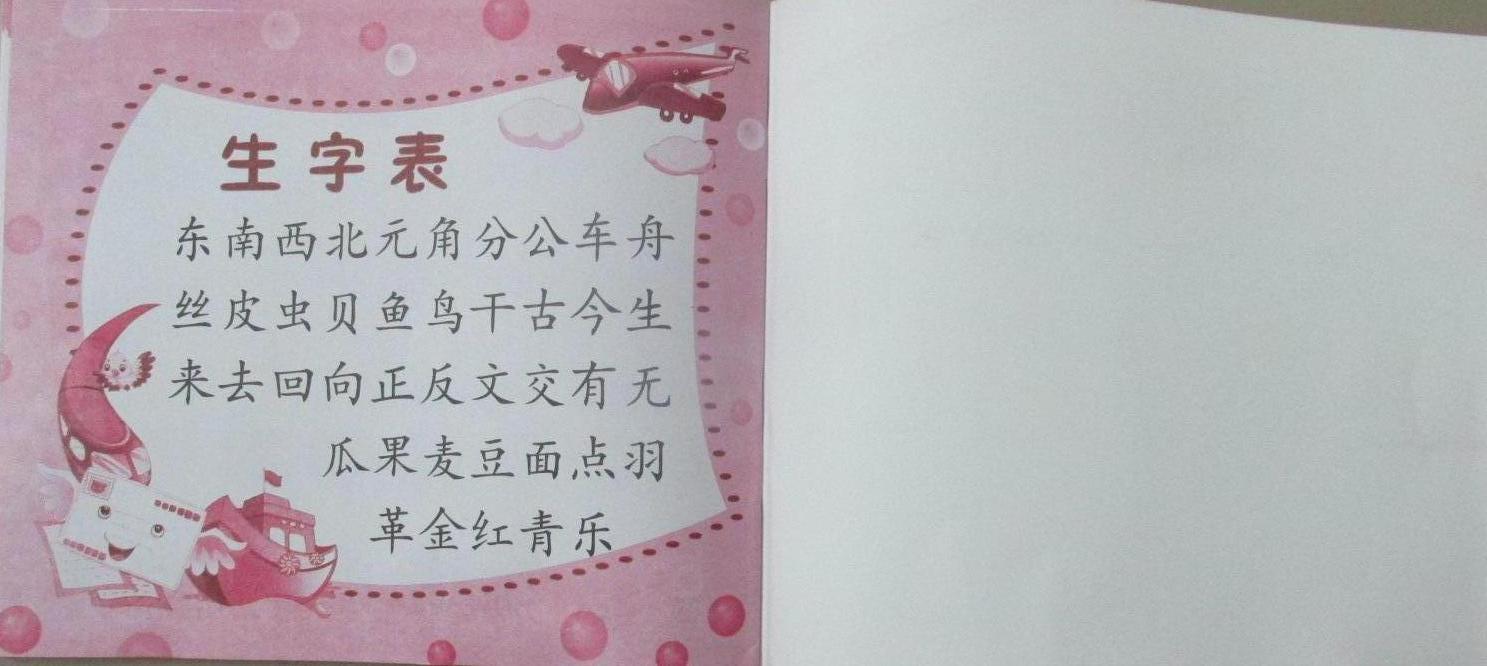 生字表
东南西北元角分公车舟
丝皮虫贝鱼鸟干古今生
来去回向正反文交有无
瓜果麦豆面点羽
革金红青乐